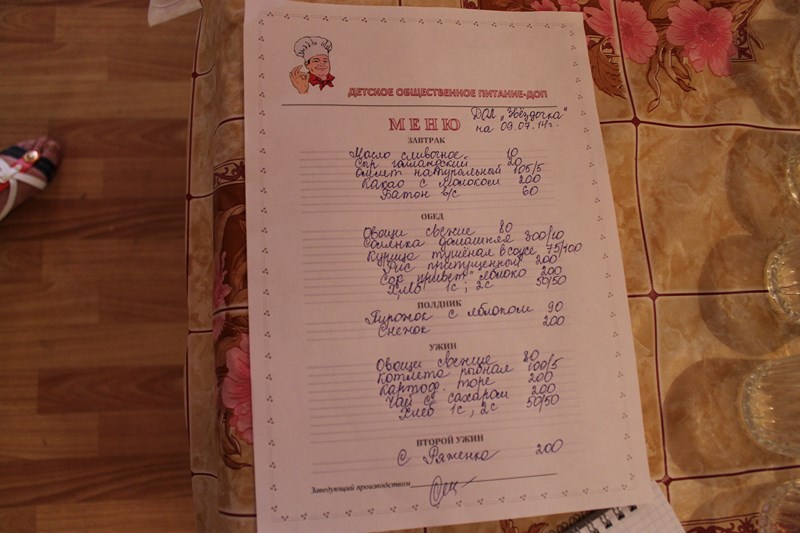 ДЕТСКОЕ ОБЩЕСТВЕННОЕ ПИТАНИЕ-ДОП
МЕНЮ
ДОЛ "Звёздочка"
на 09.07.14г.
ЗАВТРАК
Масло сливочное 10
Сыр голландский 20
Омлет натуральный 105/5
Какао с молоком 200
Батон в/с 60
ОБЕД
Овощи свежие 80
Солянка домашняя 300/10
Курица тушёная в соусе 75/100
Рис припущенный 200
Сок "привет" яблоко 200
Хлеб 1с; 2с 50/50
ПОЛДНИК
Пирожок с яблоком 90
Снежок 200
УЖИН
Овощи свежие 80
Котлета рыбная 100/5
Картоф. пюре 200
Чай с сахаром 200
Хлеб 1с; 2с 50/50
ВТОРОЙ УЖИН
Ряженка 200
Заведующий производством